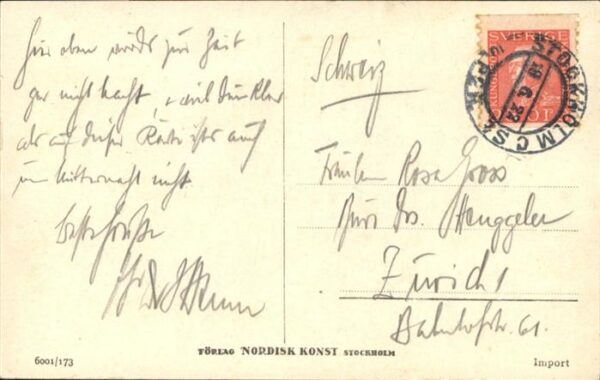 Hier oben wird's zur Zeit
gar nicht Nacht, viel dunkler
als auf dieser Karte ists auch
um Mitternacht nicht
beste Grüsse
Ihr
Schweiz
Fräulein Rosa Gross
Büro Dr. Henggeler
Zürich 1
Bahnhofstr. 61.
SVERIGE
STOCKHOLM C
18.6.29
FÖRLAG NORDISK KONST STOCKHOLM
6001/173
Import